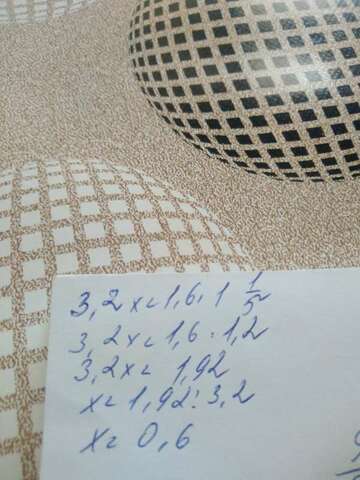 3,2x=1,6·1 1/5
3,2x=1,6·1,2
3,2x=1,92
x=1,92:3,2
x=0,6